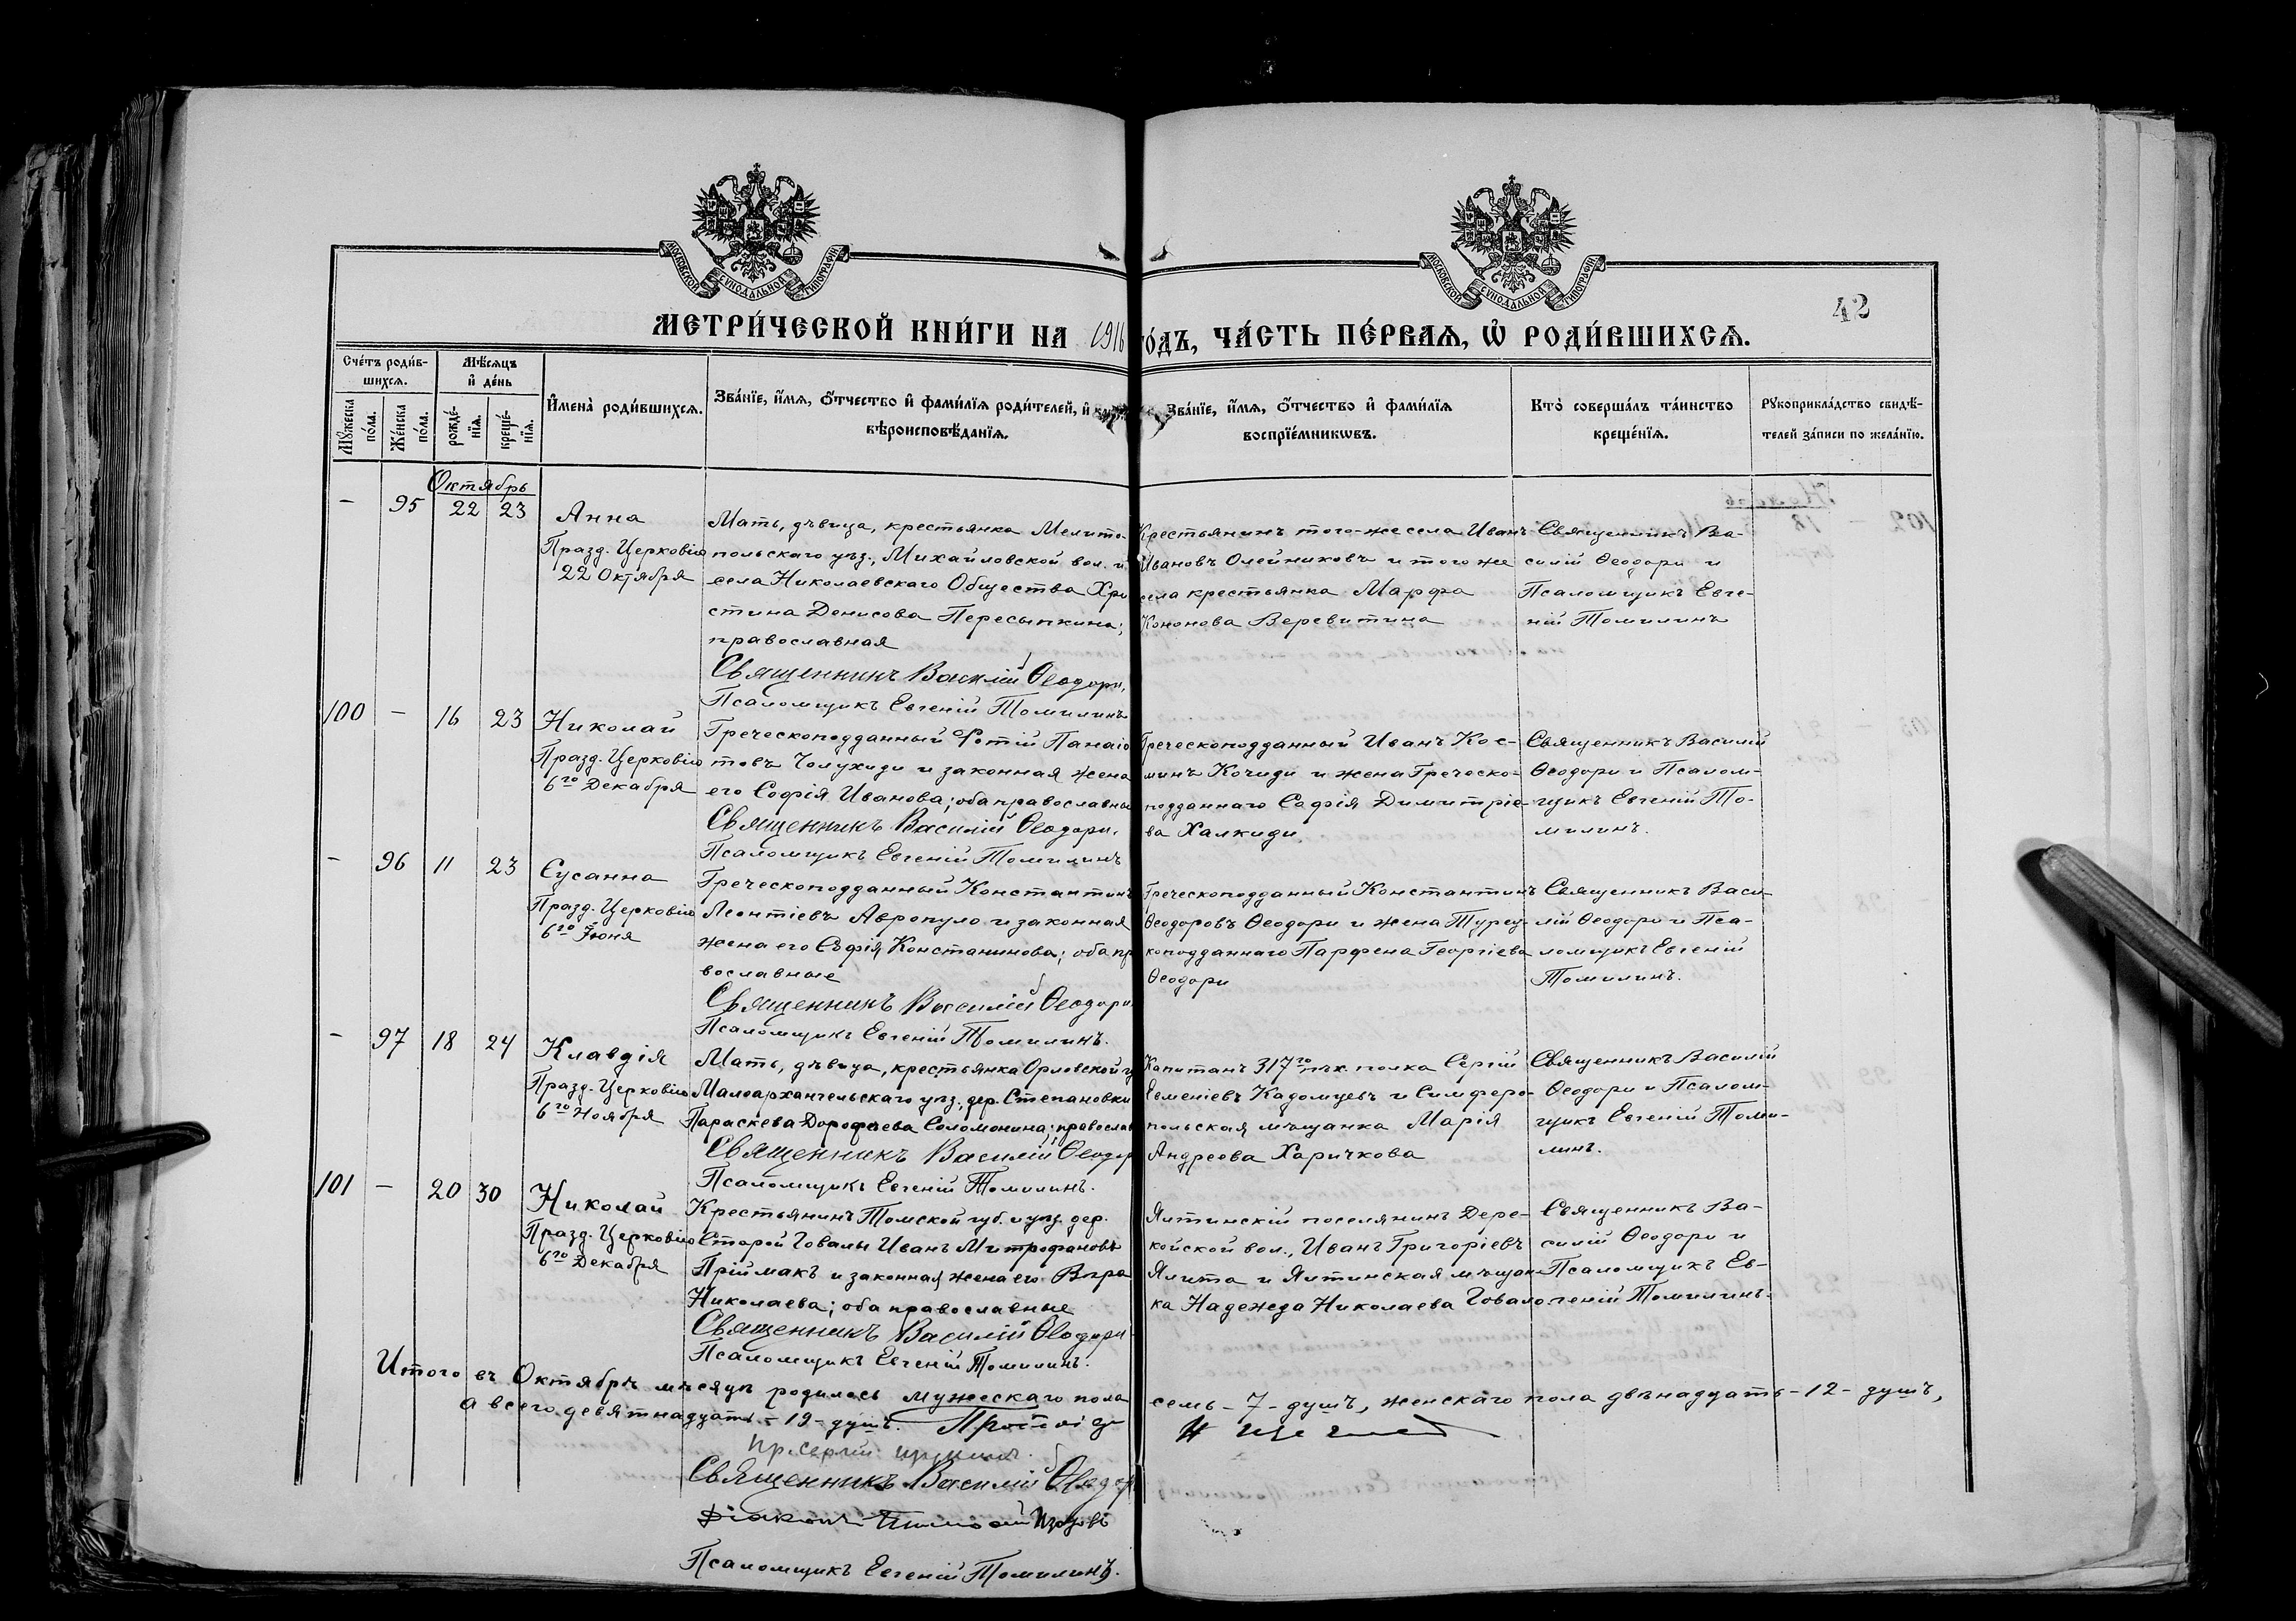 МОСКОВСКОЙ СѴНОДАЛЬНОЙ ТИПОГРАФІИ
МОСКОВСКОЙ СѴНОДАЛЬНОЙ ТИПОГРАФІИ
42
МЕТРИ́ЧЕСКОЙ КНИ́ГИ НА 1916 ГО́ДЪ, ЧА́СТЬ ПЕ́РВАЯ, Ѿ РОДИ́ВШИХСЯ.
Сче́тъ роди́в-
шихся.
Мѣ́сяцъ
и҆ де́нь
Мꙋ́жеска
по́ла.
Же́нска
по́ла.
рожде́-
нїя.
креще́-
нїя.
И҆мена̀ роди́вшихся.
Зва́нїе, и҆́мя, ѻ҆́тчество и҆ фами́лїя роди́телей, и҆
вѣроисповѣ́данїя.
Зва́нїе, и҆́мя, ѻ҆́тчество и҆ фами́лїя
воспрїе́мникѡвъ.
Кто̀ соверша́лъ та́инство
креще́нїя.
Рꙋкоприкла́дство свидѣ́-
телей за́писи по жела́нїю.
Октябрь
– 95 22 23
Анна
Празд. Церковію
22 Октября
Мать, дѣвица, крестьянка Мелито-
польскаго уѣз., Михайловской вол. и
села Николаевскаго Общества Хри
стина Денисова Пересыпкина;
православная
Священникъ Василій Ѳеодори.
Псаломщикъ Евгеній Томилинъ
Крестьянинъ того-же села Иванъ
Ивановъ Олейниковъ и того же
села крестьянка Марфа
Кононова Веревитина
Священникъ Ва-
силій Ѳеодори и
Псаломщикъ Евге-
ній Томилинъ
100 – 16 23
Николай
Празд. Церковію
6го Декабря
Греческоподданный Фотій Панаіо
товъ Чолухиди и законная жена
его Софія Иванова; оба православны
Священникъ Василій Ѳеодори.
Псаломщикъ Евгеній Томилинъ
Греческоподданный Иванъ Кос-
минъ Кочиди и жена Греческо-
подданнаго Софія Димитріе-
ва Халкиди
Священникъ Василій
Ѳеодори и Псалом-
щикъ Евгеній То-
милинъ.
– 96 11 23
Сусанна
Празд. Церковію
6го Іюня
Греческоподданный Константинъ
Леонтіевъ Авропуло и законная
жена его Софія Констанинова; оба пр
вославные
Священникъ Василій Ѳеодори
Псаломщикъ Евгеній Томилинъ.
Греческоподданный Константинъ
Ѳеодоровъ Ѳеодори и жена Турец-
коподданнаго Парфена Георгіева
Ѳеодори
Священникъ Васи-
лій Ѳеодори и Пса-
ломщикъ Евгеній
Томилинъ.
– 97 18 24
Клавдія
Празд. Церковію
6го Ноября
Мать, дѣвица, крестьянка Орловской г
Малоархангельскаго уѣз., дер. Степановки
Параскева Дорофеева Соломонина; православ
Священникъ Василій Ѳеодор
Псаломщикъ Евгеній Томилинъ.
Капитанъ 317го пѣх. полка Сергій
Евменіевъ Кадомцевъ и Симферо-
польская мѣщанка Марія
Андреева Харичкова
Священникъ Василій
Ѳеодори и Псалом-
щикъ Евгеній Томи-
линъ.
101 – 20 30
Николай
Празд. Церковію
6го Декабря
Крестьянинъ Томской губ. и уѣз. дер.
Старой Ювалы Иванъ Митрофановъ
Пріймакъ и законная жена его Вѣра
Николаева; оба православные
Священникъ Василій Ѳеодори
Псаломщикъ Евгеній Томилинъ.
Ялтинскій поселянинъ Дере-
койской вол., Иванъ Григоріевъ
Ялита и Ялтинская мѣщан-
ка Надежда Николаева
Священникъ Ва-
силій Ѳеодори и
Псаломщикъ Ев-
геній Томилинъ.
Итого въ Октябрѣ мѣсяцѣ родилось мужескаго пола семь – 7 – душъ, женскаго пола двѣнадцать – 12 – душъ,
а всего девятнадцать – 19 – душъ.
Священникъ Василій Ѳеодор
Діаконъ
Псаломщикъ Евгеній Томилинъ.